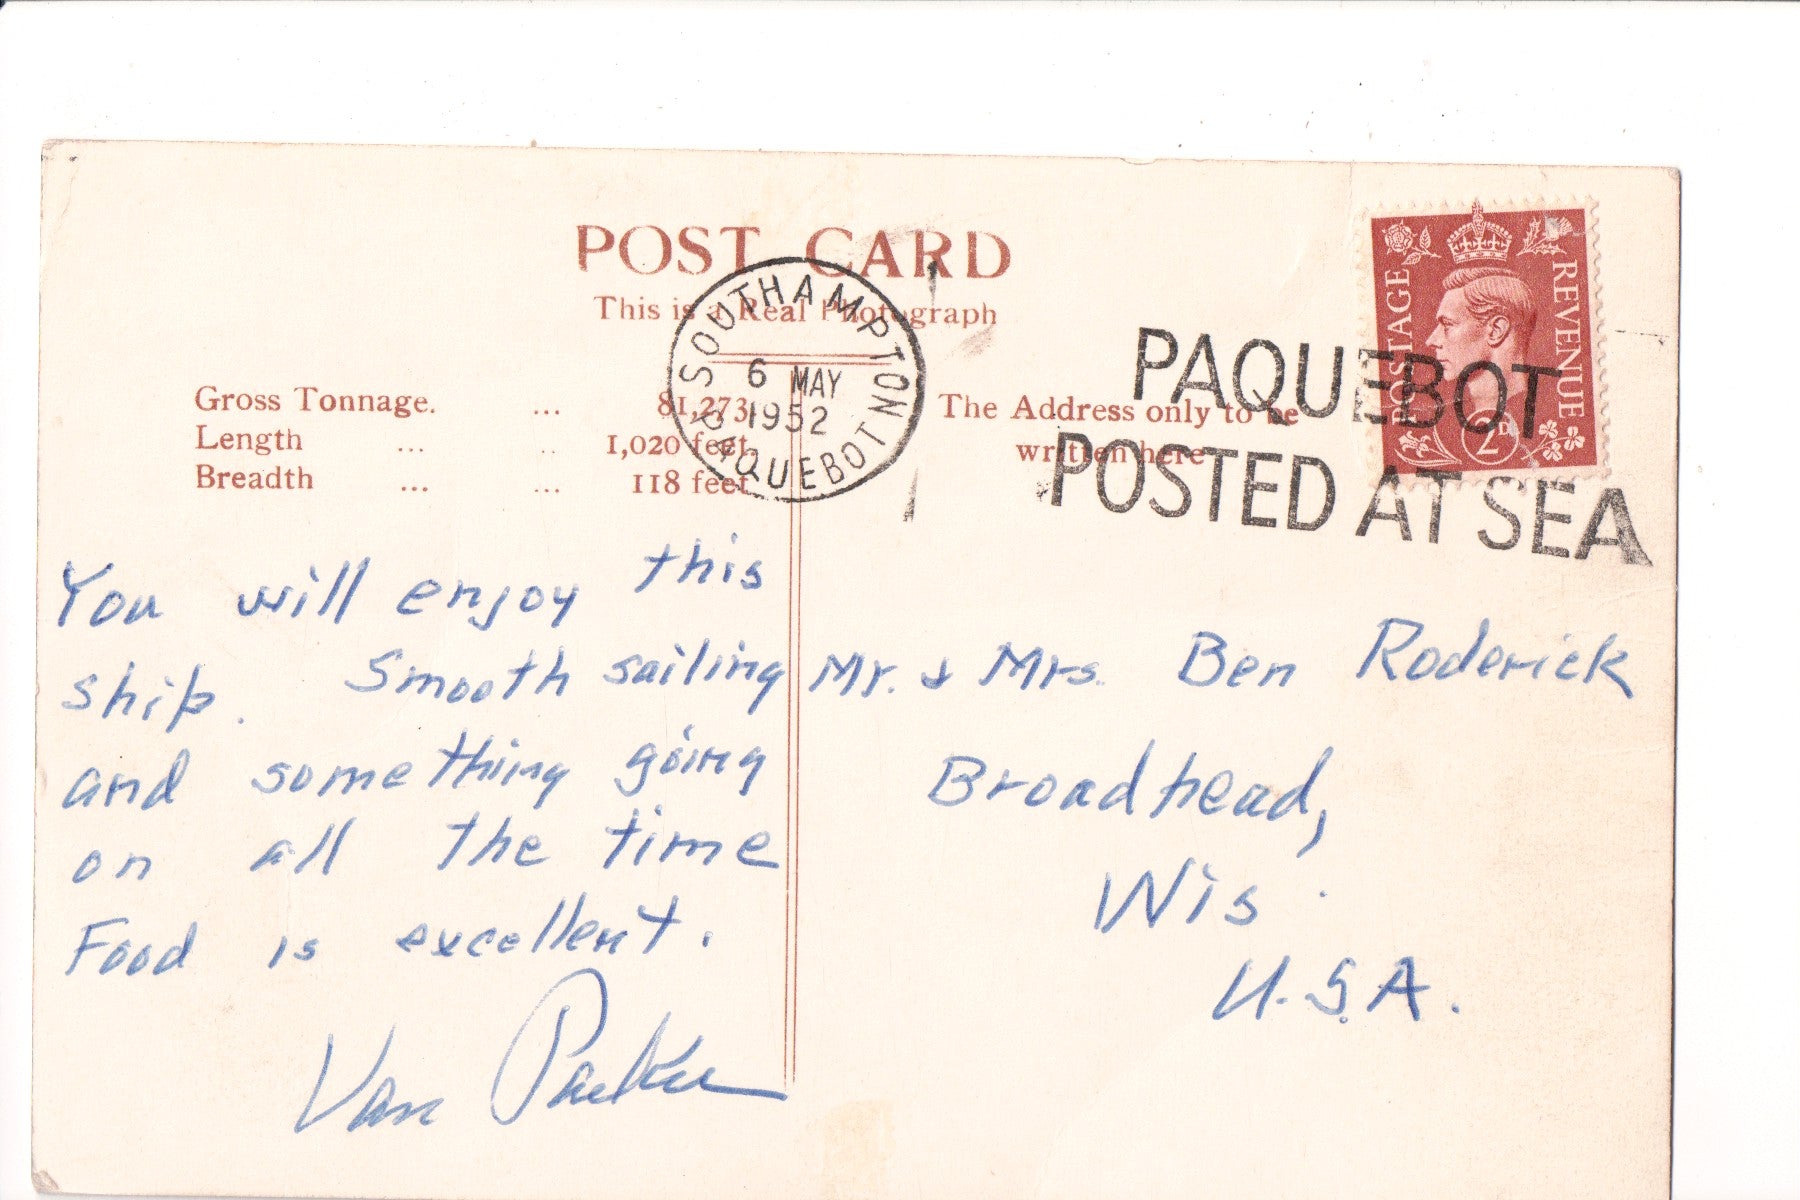 POST CARD
This is a Real Photograph
SOUTHAMPTON
6 MAY
1952
PAQUEBOT
PAQUEBOT
POSTED AT SEA
POSTAGE REVENUE
2D
Gross Tonnage. ... 81,273
Length ... .. 1,020 feet
Breadth ... ... 118 feet
The Address only to be
written here
You will enjoy this
ship. Smooth sailing
and something going
on all the time
Food is excellent.
Van Parker
Mr. & Mrs. Ben Roderick
Broadhead,
Wis.
U.S.A.